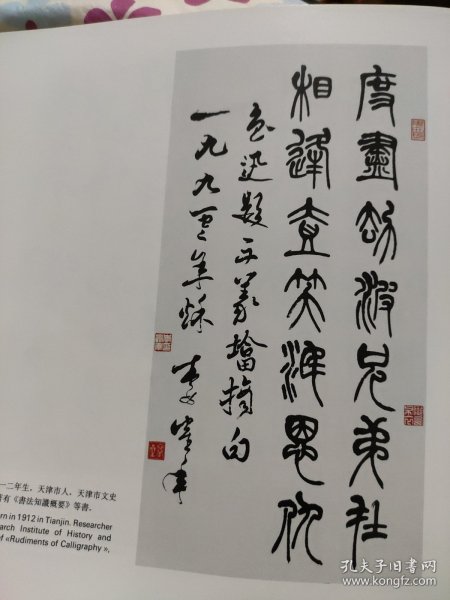 度盡劫波兄弟在
相逢壹笑泯恩仇
魯迅題三義塔摘句
一九九零年秋 李鶴年
一二年生，天津市人，天津市文史
著有《書法知識概要》等書。
rn in 1912 in Tianjin. Researcher
arch Institute of History and
f «Rudiments of Calligraphy »,
孔夫子旧书网